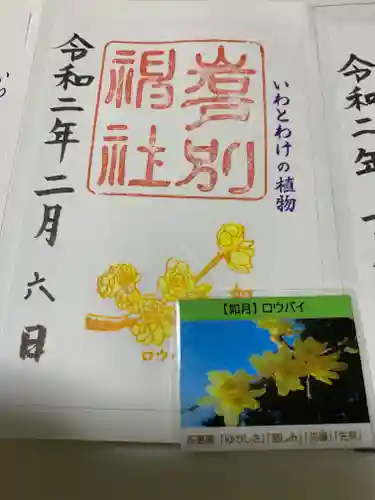 令和二年
いわとわけの植物
岩戸別
神社
令和二年二月六日
ロウ
【如月】ロウバイ
花言葉「ゆかしさ」「慈しみ」「先導」「先見」